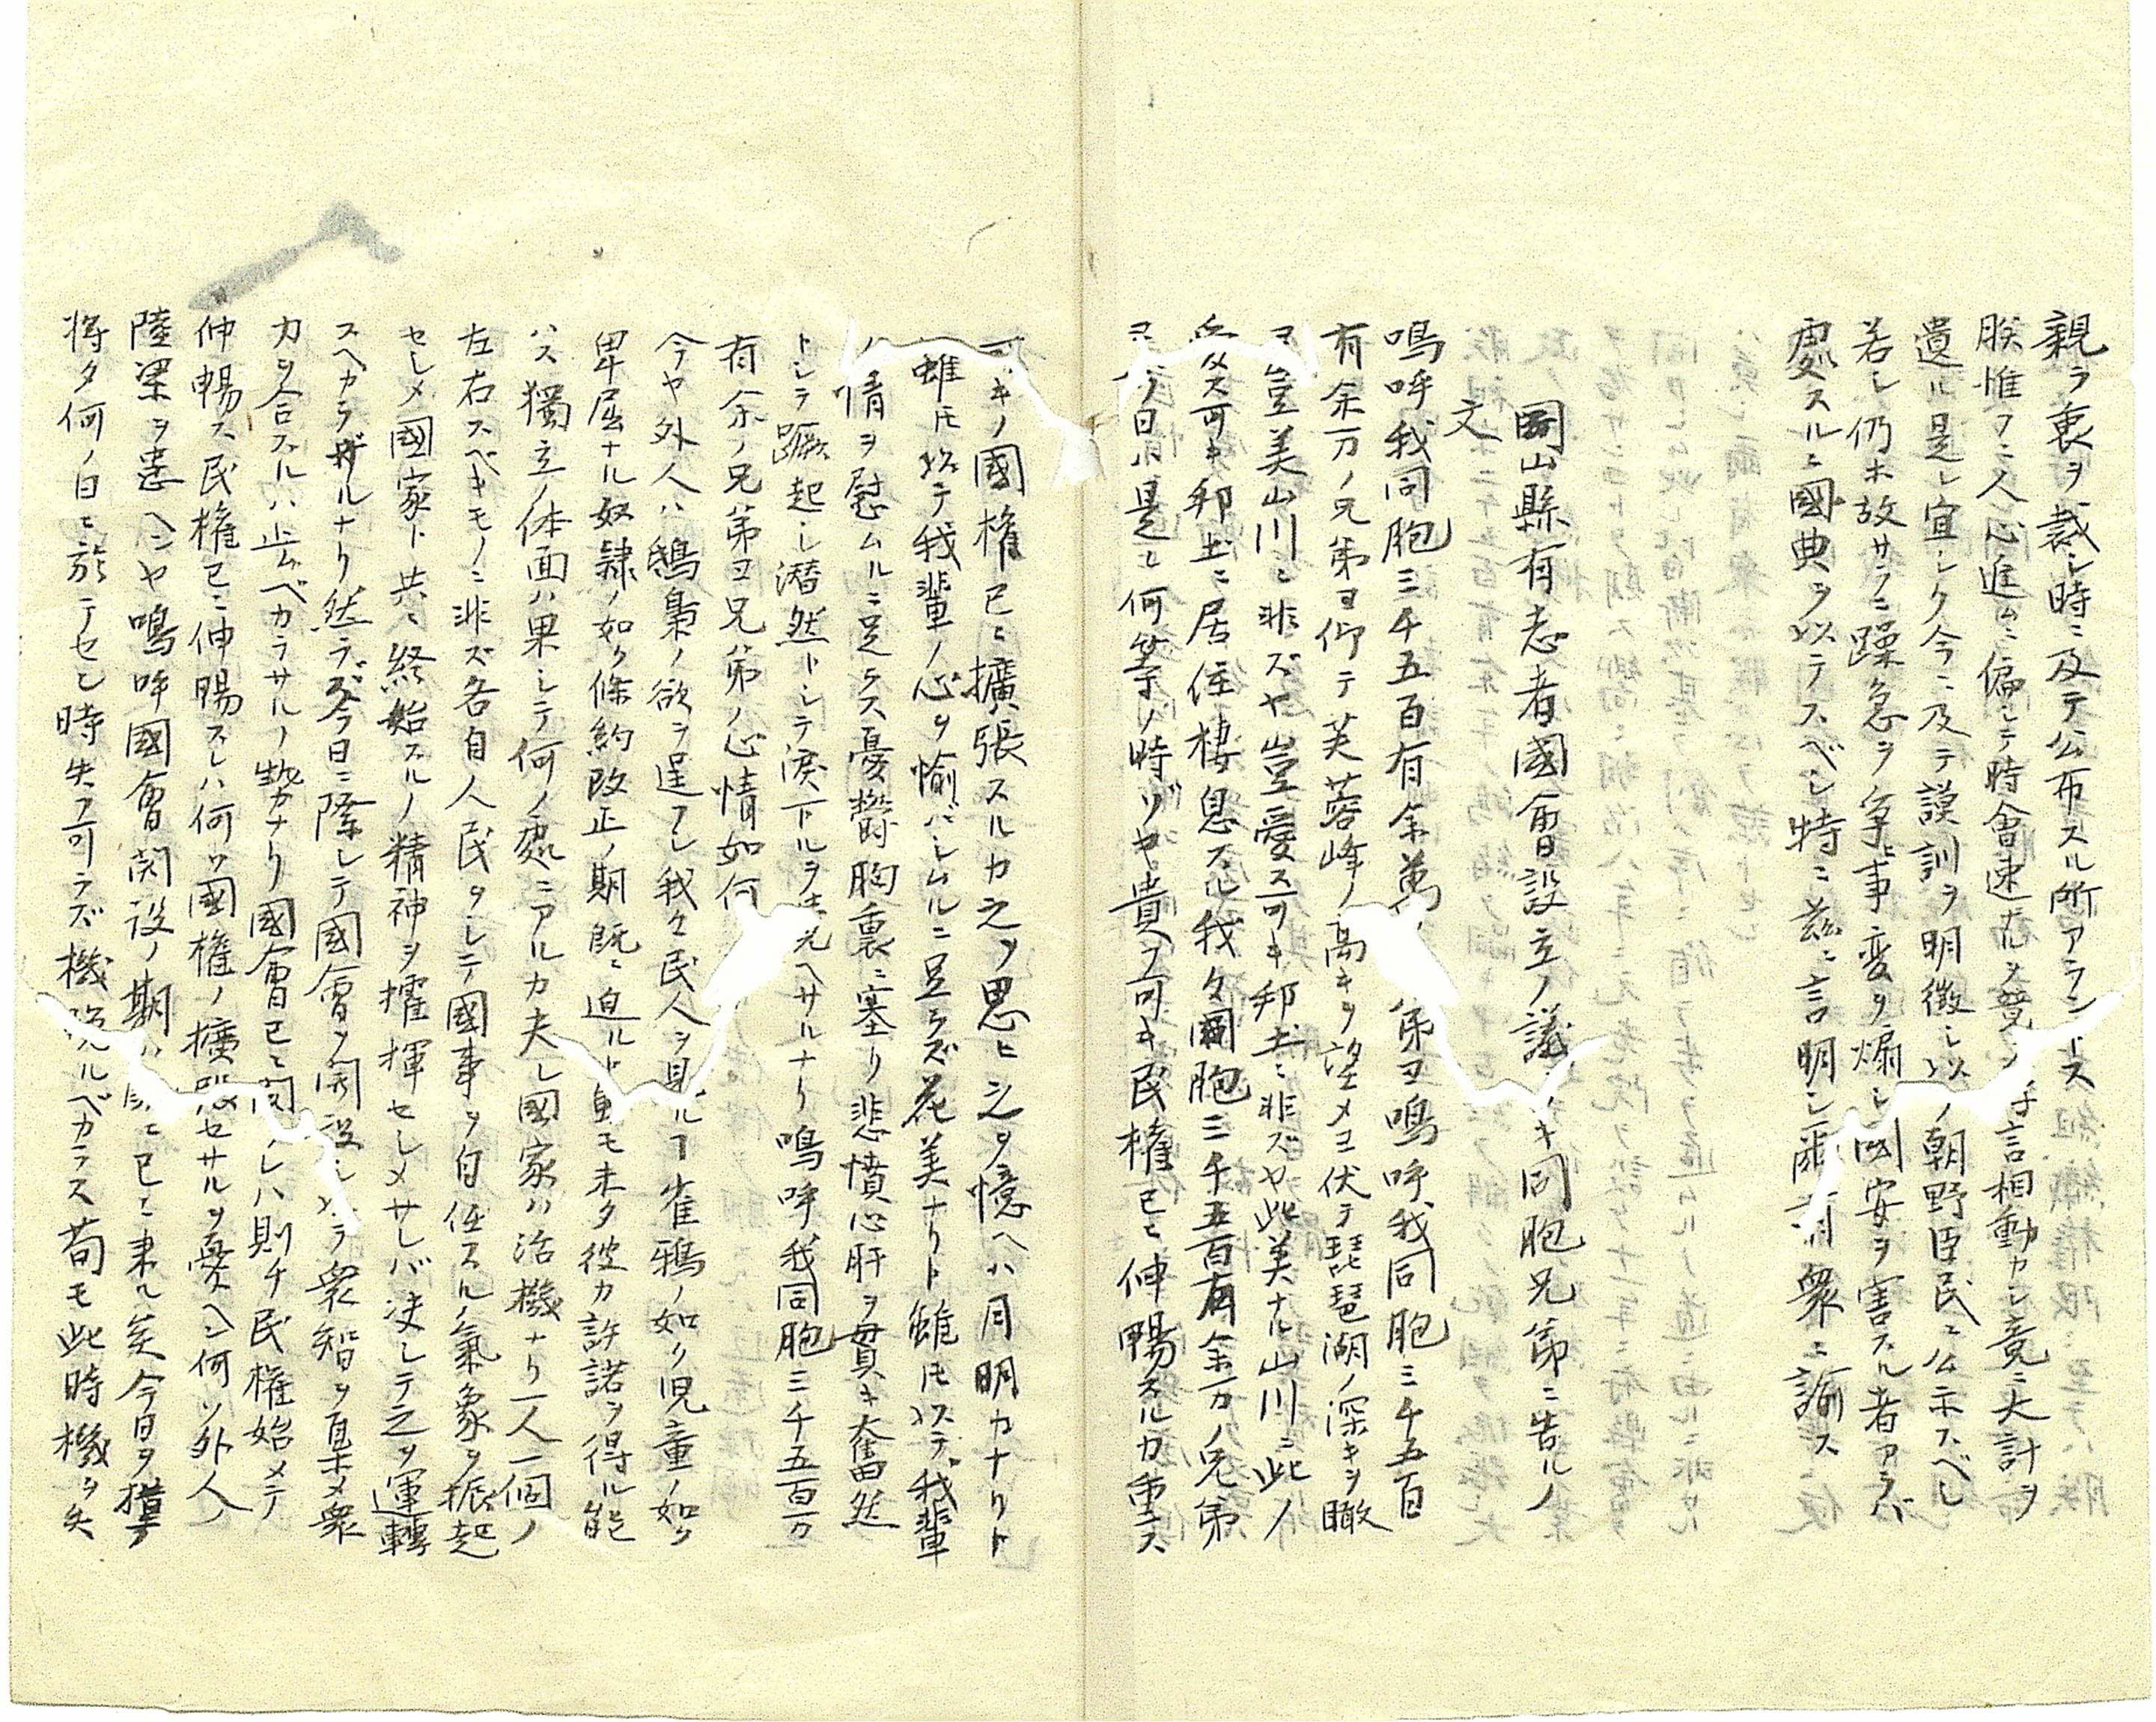 親ラ衷ヲ裁シ時ニ及テ公布スル所アラントス
朕惟フニ人心進ムニ偏シテ時會速ナルヲ競フ 言相動カシ竟ニ大計ヲ
遺ル是レ宜シク今ニ及テ謨訓ヲ明徴シ以ノ朝野臣民ニ公示スベシ
若シ仍ホ故サラニ躁急ヲ争ヒ事変ヲ煽シ國安ヲ害スル者アラバ
處スルニ國典ヲ以テスベシ特ニ茲ニ言明シ爾有衆ニ諭ス
岡山縣有志者國會設立ノ議 キ同胞兄弟ニ告ルノ
文
嗚呼我同胞三千五百有余萬ノ 弟ヨ嗚呼我同胞三千五百
有余万ノ兄弟ヨ仰テ芙蓉峰ノ高キヲ望メヨ伏テ琵琶湖ノ深キヲ瞰
ヨ豈美山川ニ非ズヤ豈愛ス可キ邦土ニ非ズヤ此美ナル山川ニ此ノ
愛ス可キ邦土ニ居住棲息スル我々同胞三千五百有余万ノ兄弟
ヨ 今日ハ是レ何等ノ時ゾヤ貴フ可キ民權已ニ伸暢スルカ重ス
可キノ國權已ニ擴張スルカ之ヲ思ヒ之ヲ憶ヘハ月明カナリト
雖モ以テ我輩ノ心ヲ愉バシムルニ足ラズ花美ナリト雖モ以テ我輩
ノ情ヲ慰ムルニ足ラス憂欝胸裏ニ塞リ悲憤心肝ヲ貫キ奮然
トシテ蹶起シ潸然トシテ涙下ルヲ 覚ヘサルナリ嗚呼我同胞三千五百万
有余ノ兄弟ヨ兄弟ノ心情如何
今ヤ外人ハ鴟梟ノ欲ヲ逞フシ我々民人ヲ見ルヿ雀鴉ノ如ク児童ノ如ク
卑屈ナル奴隷ノ如ク條約改正ノ期既ニ迫ルト モ未タ彼カ許諾ヲ得ル能
ハス獨立ノ体面ハ果シテ何ノ處ニアルカ夫レ國家ハ活機ナリ一人一個ノ
左右スベキモノニ非ズ各自人民タシテ國事ヲ自任スルノ氣象ヲ振起
セシメ國家ト共ニ終始スルノ精神ヲ擢揮セシメサレバ决シテ之ヲ運轉
スヘカラザルナリ然ラバ今日ニ際シテ國會ヲ開設シ 衆智ヲ集メ衆
力ヲ合スルハ止ムベカラサルノ勢ナリ國會已ニ開ク レハ則チ民權始メテ
伸暢ス民權已ニ伸暢スレハ何ソ國權ノ擴張セサルヲ憂ヘン何ソ外人ノ
陸梁ヲ患ヘンヤ嗚呼國會開設ノ期ハ ニ已ニ來ル矣今日ヲ措テ
将タ何ノ日ニ於テセン時失フ可ラズ機 ルベカラス苟モ此時機ヲ失